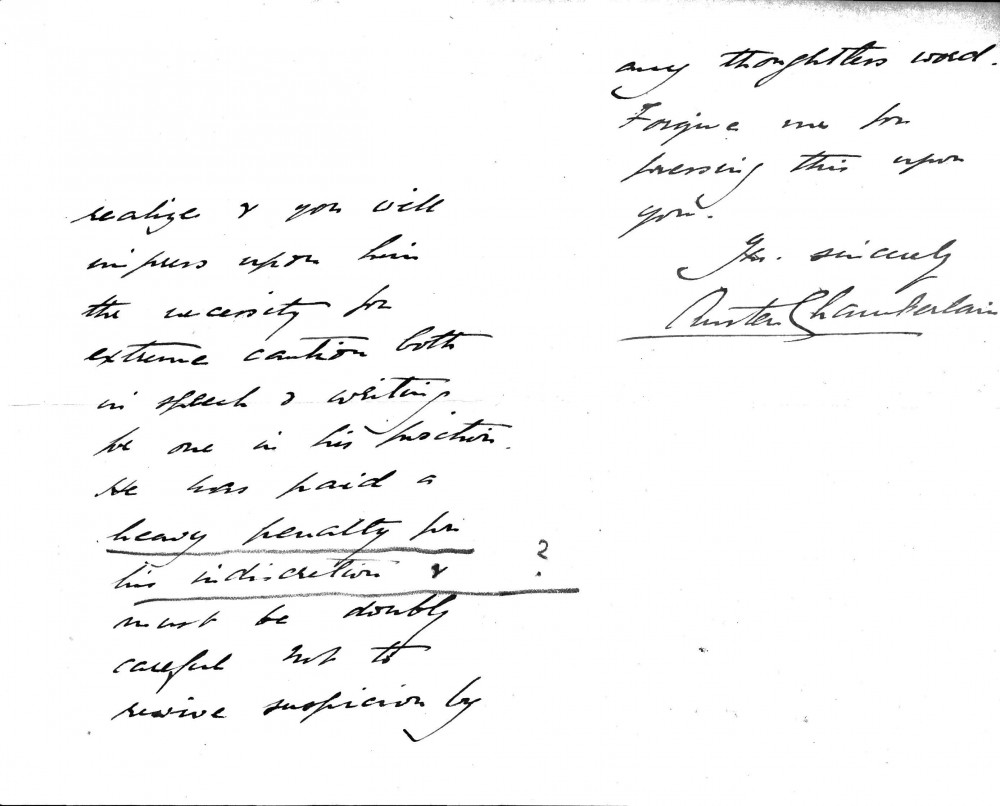 realize & you will
impress upon him
the necessity for
extreme caution both
in speech & writing
by one in his position.
He has paid a
heavy penalty for
his indiscretion & ?
must be doubly
careful not to
revive suspicion by
any thoughtless word.
Forgive me for
pressing this upon
you.
Yrs. sincerely
Austen Chamberlain